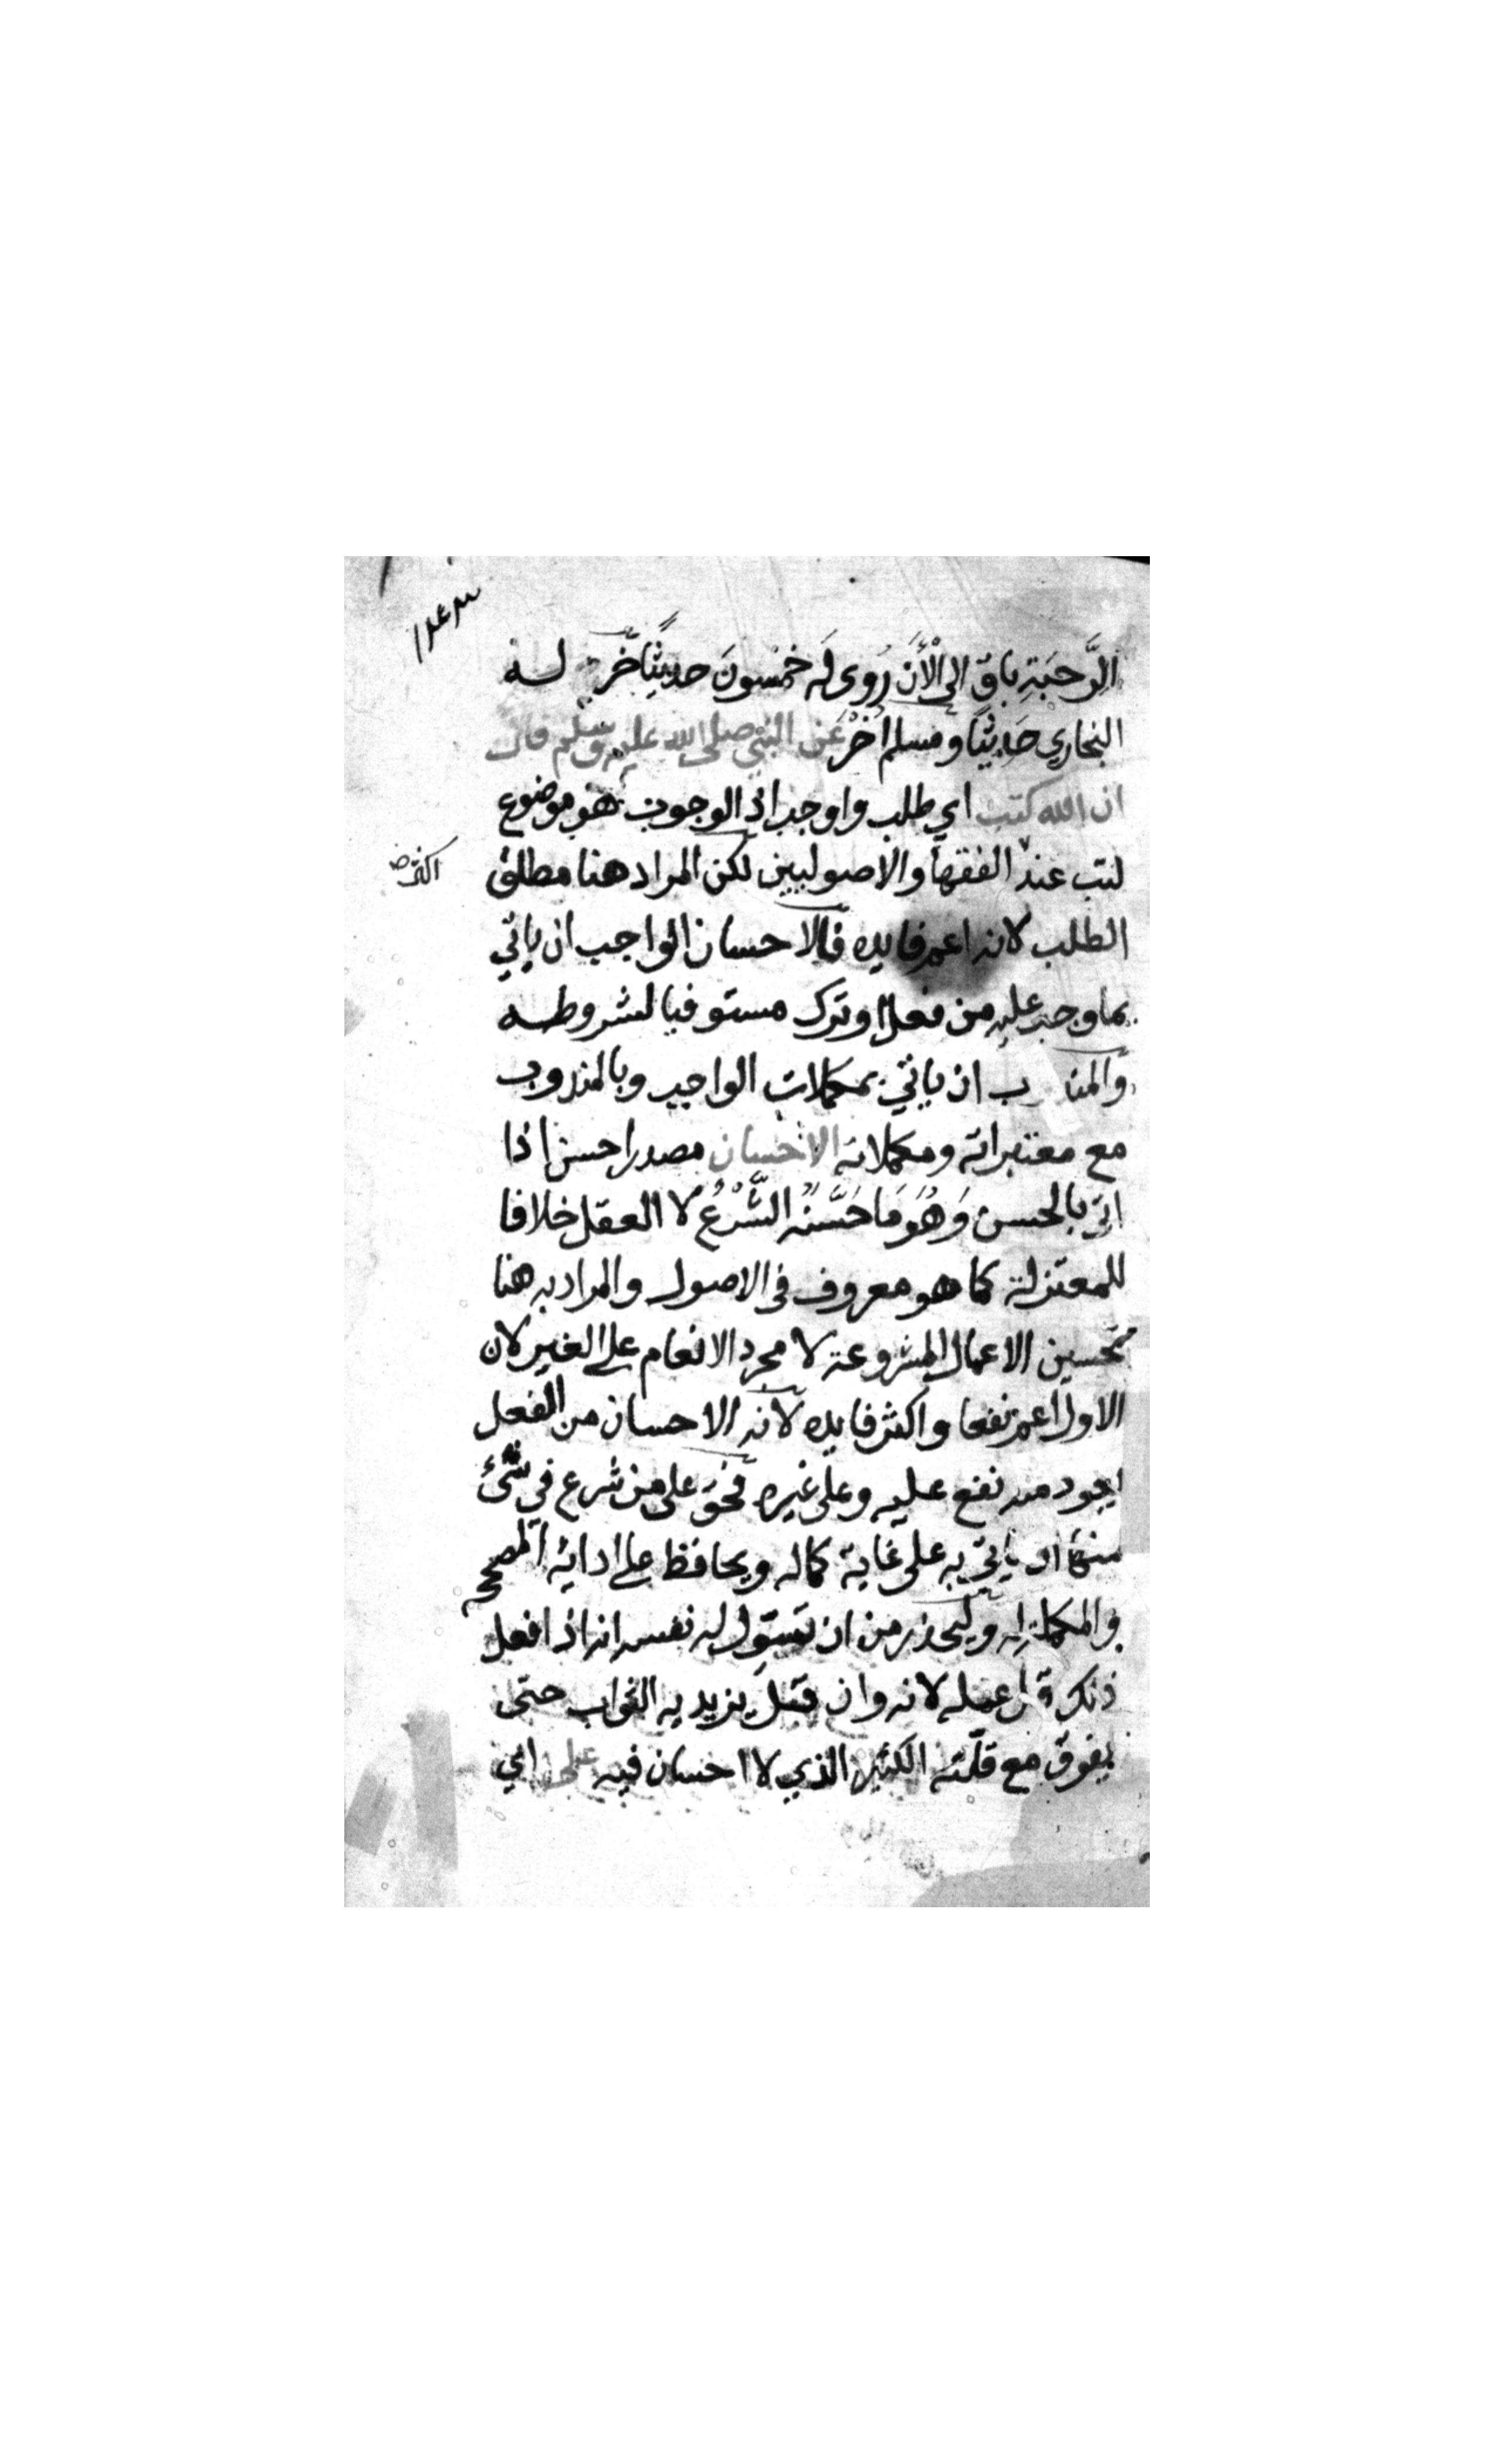 الرَّحبَةِ باقٍ الى الْأَن رُوى لَه خمسُونَ حديثًا خرّج له
البخاري حَديثًا ومسلم آخَرَ عَن النبي صلى الله عليه وسلم قال
ان الله كتب اي طلب واوجب اذ الوجوب هو موضوع
كتب عند الفقها والاصوليين لكن المراد هنا مطلق
اكثر
الطلب لانه اعم فايده فالاحسان الواجب ان ياتي
بما وجب عليه من فعل او ترك مستوفيا لشروطه
والمندوب ان ياتي بمكملات الواجب وبالمندوب
مع معتبراته ومكملاته الاحسان مصدر احسن اذا
اتى بالحسن وَهُوَ مَا حَسَّنَهُ الشَّرْعُ لا العقل خلافا
للمعتزلة كما هو معروف في الاصول والمراد به هنا
تحسين الاعمال المشروعة لا مجرد الانعام على الغير لان
الاول اعم نفعا واكثر فايده لانه الاحسان من الفعل
يعود منه نفع عليه وعلى غيره فحق على من شرع في شئ
منها ان ياتي به على غاية كماله ويحافظ على ادائه المصححه
والمكمله له وليحذر من ان تسَوّل له نفسه انه اذا فعل
ذلك قل عمله لانه وان قَلَّ يزيد به الثواب حتى
يفوق مع قلّته الكثير الذي لا احسان فيه على اي